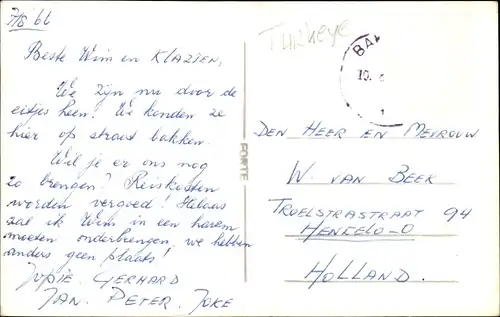 7/8 66
Beste Wim en KLAZIEN,
We zijn nu door de
eitjes heen! We konden ze
hier op straat bakken.
Wil je er ons nog
zo brengen? Reiskosten
worden vergoed! Helaas
zal ik Wim in een harem
moeten onderbrengen, we hebben
anders geen plaats!
JOPIE. GERHARD
JAN. PETER. JOKE
FORTE
TURKEYE
BA
10.
1
DEN HEER EN MEVROUW
W. VAN BEEK
TROELSTRASTRAAT 94
HENGELO-O
HOLLAND.